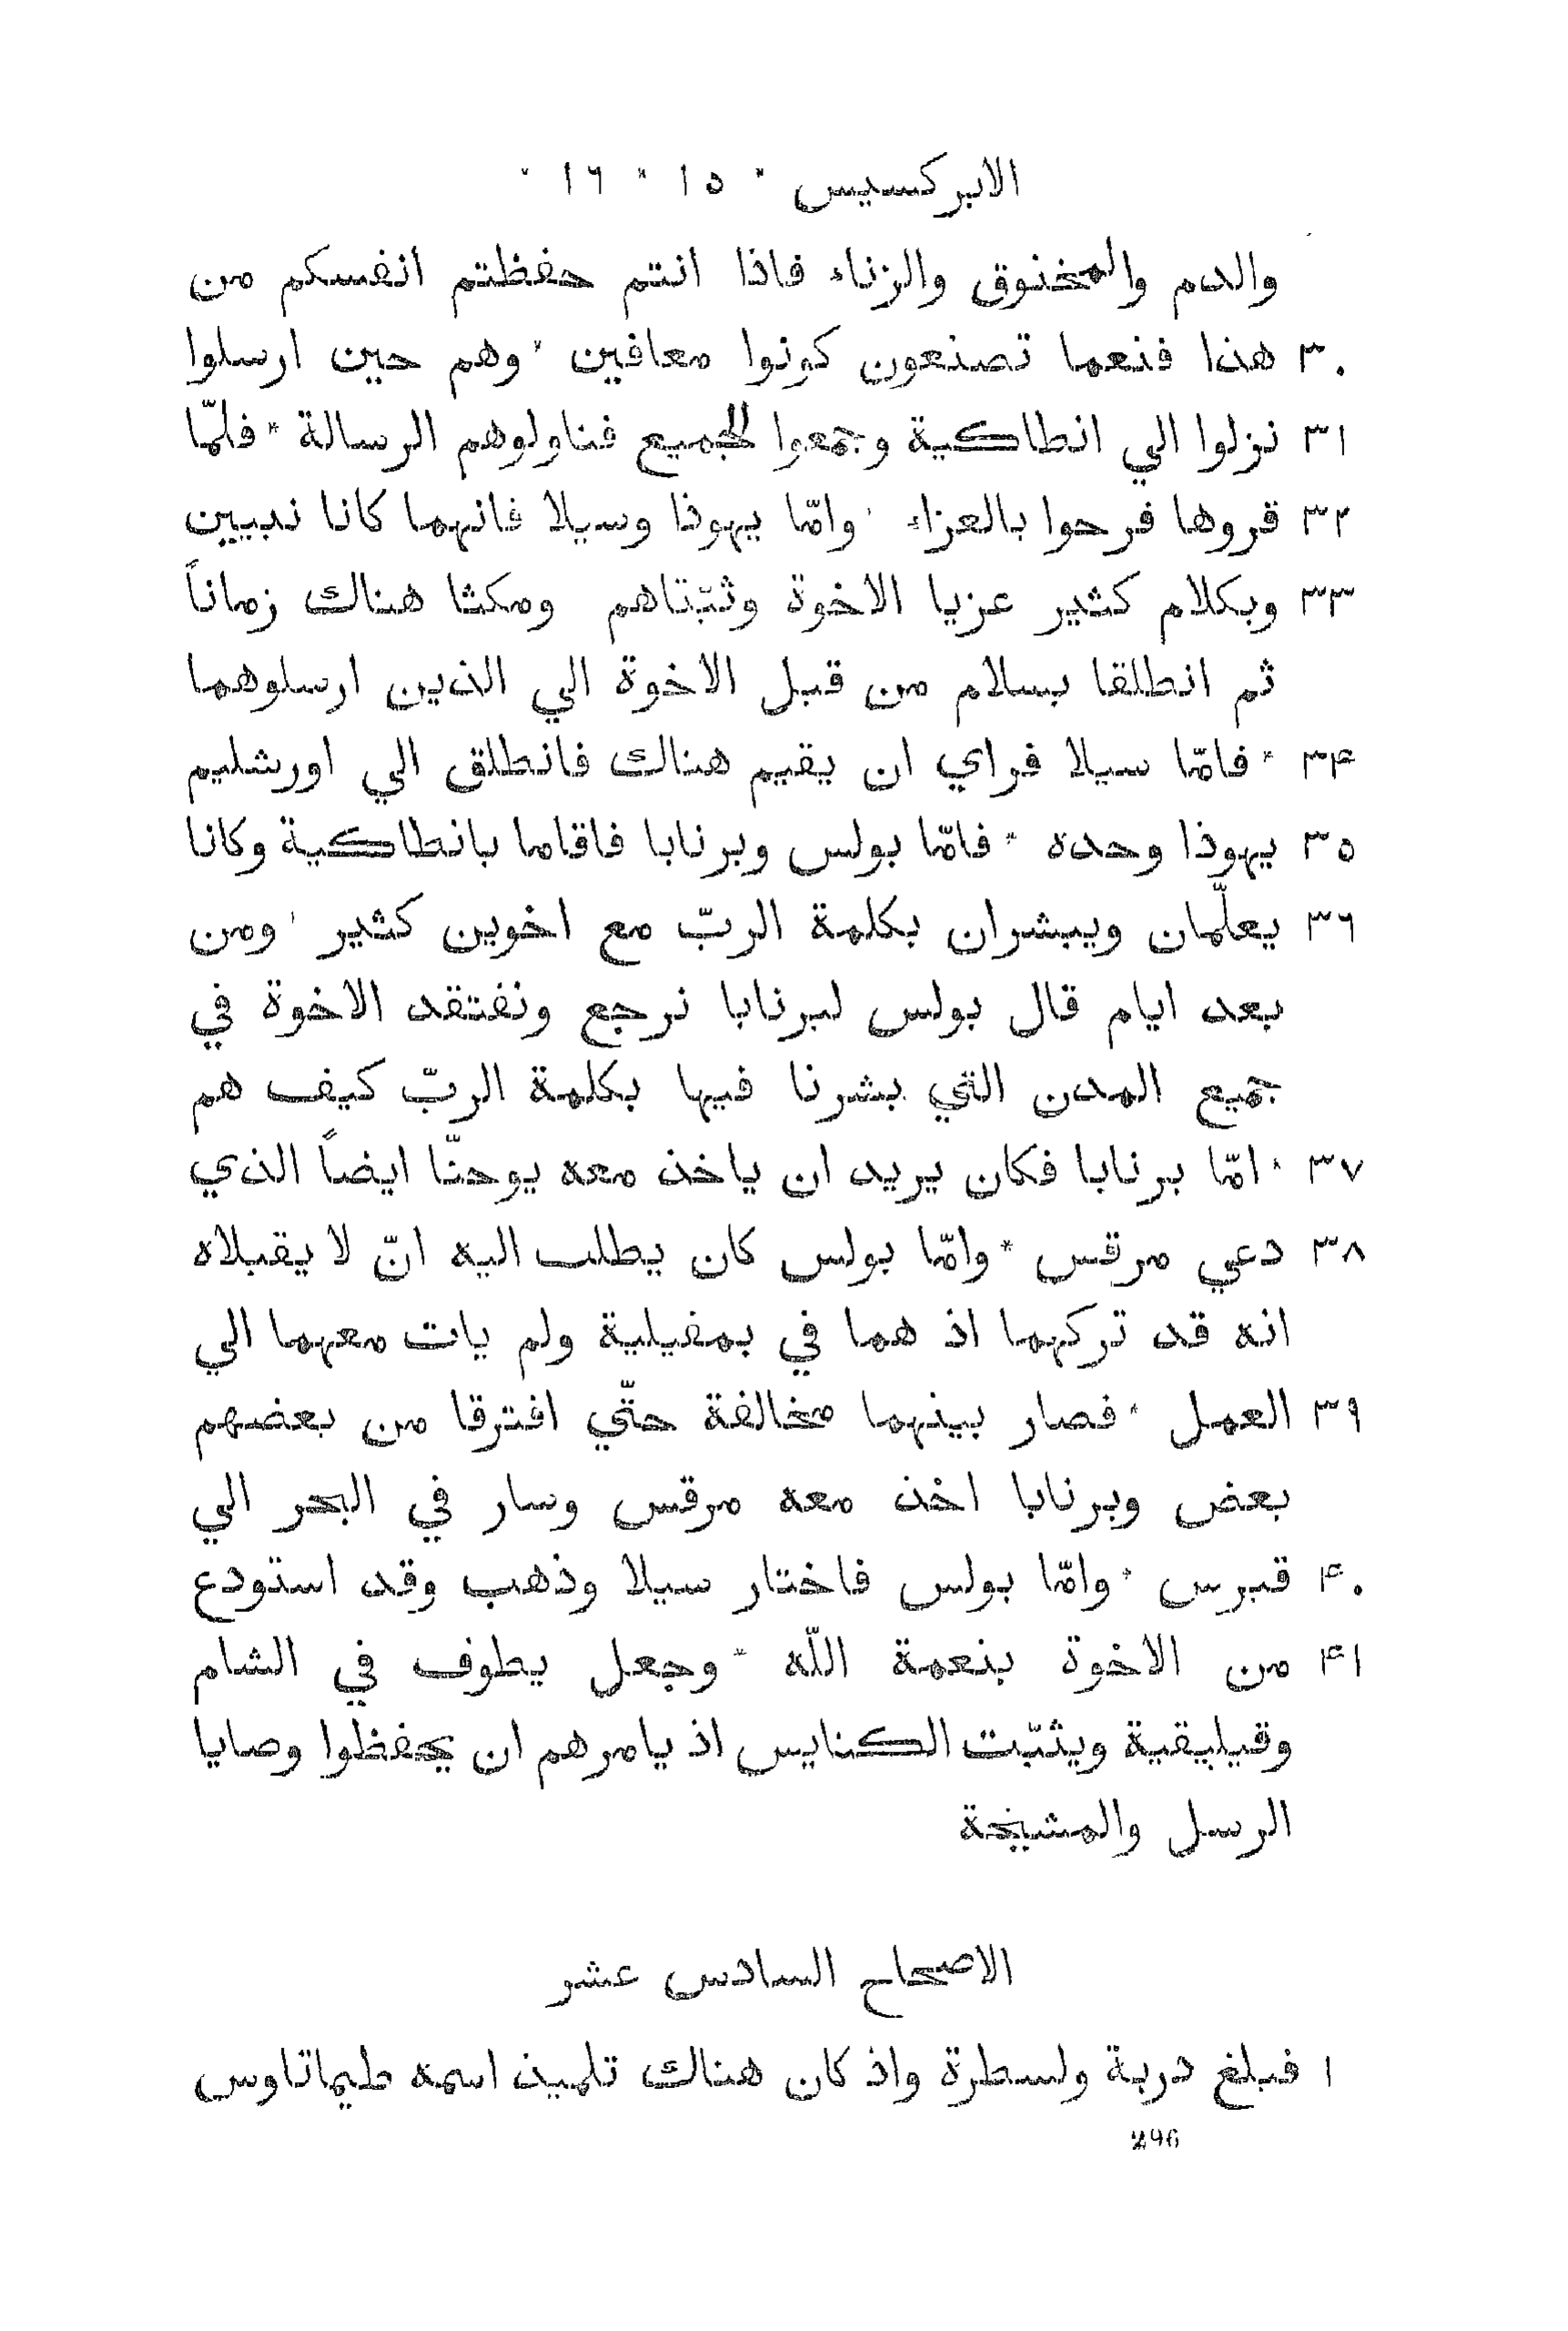 الابركسيس * ١٥ * ١٦ *
والدم والمخنوق والزناء فاذا انتم حفظتم انفسكم من
٣٠ هذا فنعما تصنعون كونوا معافين * وهم حين ارسلوا
٣١ نزلوا الي انطاكية وجمعوا الجميع فناولوهم الرسالة * فلمّا
٣٢ قروها فرحوا بالعزاء * وامّا يهوذا وسيلا فانهما كانا نبيين
٣٣ وبكلام كثير عزيا الاخوة وثبّتاهم ومكثا هناك زماناً
ثم انطلقا بسلام من قبل الاخوة الي الذين ارسلوهما
٣٤ * فامّا سيلا فراي ان يقيم هناك فانطلق الي اورشليم
٣٥ يهوذا وحده * فامّا بولس وبرنابا فاقاما بانطاكية وكانا
٣٦ يعلّمان ويبشران بكلمة الربّ مع اخوين كثير * ومن
بعد ايام قال بولس لبرنابا نرجع ونفتقد الاخوة في
جميع المدن التي بشرنا فيها بكلمة الربّ كيف هم
٣٧ * امّا برنابا فكان يريد ان ياخذ معه يوحنّا ايضاً الذي
٣٨ دعي مرقس * وامّا بولس كان يطلب اليه انّ لا يقبلاه
انه قد تركهما اذ هما في بمفيلية ولم يات معهما الي
٣٩ العمل * فصار بينهما مخالفة حتّي افترقا من بعضهم
بعض وبرنابا اخذ معه مرقس وسار في البحر الي
٤٠ قبرس * وامّا بولس فاختار سيلا وذهب وقد استودع
٤١ من الاخوة بنعمة اللّه * وجعل يطوف في الشام
وقيليقية ويثبّت الكنايس اذ يامرهم ان يحفظوا وصايا
الرسل والمشيخة
الاصحاح السادس عشر
١ فبلغ دربة ولسطرة واذ كان هناك تلميذ اسمه طيماتاوس
296